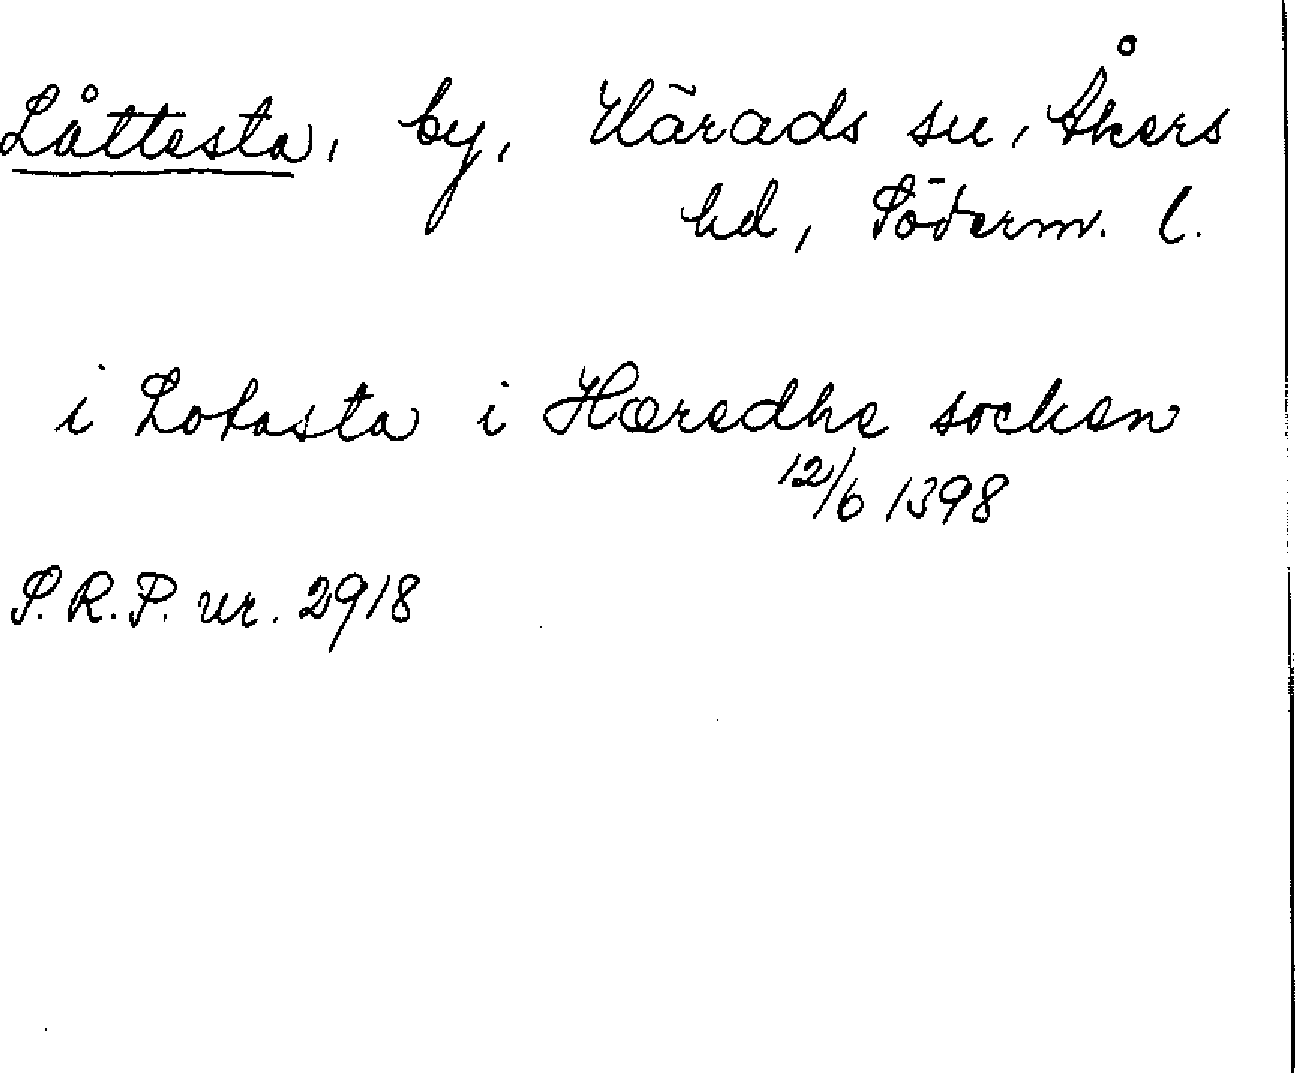 Låttesta, by, Härads sn, Åkers
hd, Söderm. l.
i Lotasta i Hæredhe socken
12/6 1398
S.R.P. nr. 2918